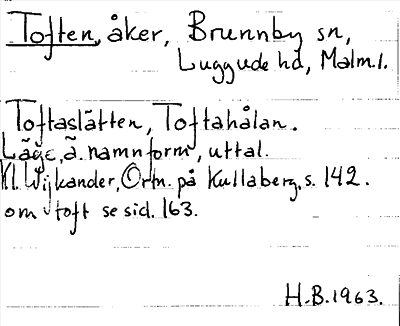 Toften, åker, Brunnby sn,
Luggude hd, Malm.l.
Toftaslätten, Toftahålan.
Läge, ä. namnform, uttal.
Kl. Wijkander, Ortn. på Kullaberg, s. 142.
om toft se sid. 163.
H.B. 1963.